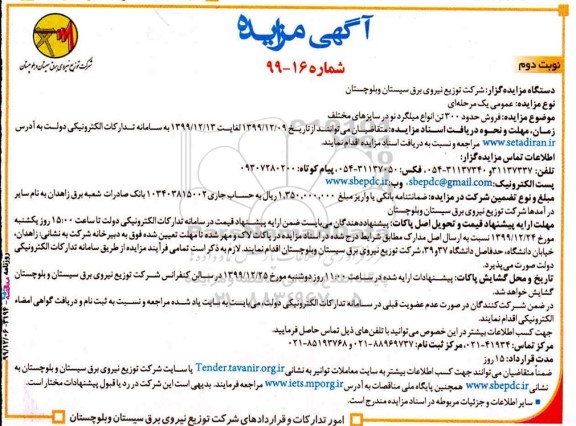 آگهی مزایده
شماره ۱۶-۹۹
نوبت دوم
شرکت توزیع نیروی برق سیستان و بلوچستان
دستگاه مزایده‌گزار: شرکت توزیع نیروی برق سیستان وبلوچستان
نوع مزایده: عمومی یک مرحله‌ای
موضوع مزایده: فروش حدود ۳۰۰ تن انواع میلگرد نو در سایزهای مختلف
زمـان، مهلت و نحـوه دریافـت اسـناد مزایـده: متقاضیـان می تواننـد از تاریـخ ۱۳۹۹/۱۲/۰۹ لغایـت ۱۳۹۹/۱۲/۱۳ به سـامانه تدارکات الکترونیکی دولـت به آدرس
www.setadiran.ir مراجعه و نسبت به دریافت اسناد مزایده اقدام نمایند.
اطلاعات تماس مزایده‌گزار:
تلفن: ۳۱۱۳۷۳۳۷و ۳۱۱۳۷۳۴۰-۰۵۴، فکس: ۳۱۱۳۷۰۵۰-۰۵۴، پیام کوتاه: ۰۹۳۰۷۲۸۰۲۰۰
پست الکترونیک: sbepdc@gmail.com، وب: www.sbepdc.ir
مبلغ و نوع تضمین شرکت در مزایده: ضمانتنامه بانکی یا واریز مبلغ ۱,۳۵۰,۰۰۰,۰۰۰ ریال به حساب جاری ۱۰۳۴۰۳۸۱۵۰۰۲ بانک صادرات شعبه برق زاهدان به نام سایر
درآمدها شرکت توزیع نیروی برق سیستان وبلوچستان
مهلت ارایه پیشنهاد قیمت و تحویل اصل پاکات: پیشنهاددهندگان می‌بایست ضمن ارایه پیشنهاد قیمت در سامانه تدارکات الکترونیکی دولت تا ساعت ۱۵:۰۰ روز یکشنبه
مورخ ۱۳۹۹/۱۲/۲۴ نسبت به ارسال اصل مدارک مطابق شرایط درج شده در اسناد مزایده در پاکت لاک و مهر شده تا مهلت تعیین شده فوق به دبیرخانه شرکت به نشانی: زاهدان،
خیابان دانشگاه، حدفاصل دانشگاه ۳۷و۳۹، شرکت توزیع نیروی برق سیستان وبلوچستان اقدام نمایند. لازم به ذکر است تمامی فرآیند مزایده از طریق سامانه تدارکات الکترونیکی،
دولت صورت می‌پذیرد.
تاریخ و محل گشایش پاکات: پیشنهادات ارایه شده در ساعت ۱۱:۰۰ روز دوشنبه مورخ ۱۳۹۹/۱۲/۲۵ در سالن کنفرانس شرکت توزیع نیروی برق سیستان و بلوچستان
گشایش خواهد شد.
در ضمن شرکت کنندگان در صورت عدم عضویت قبلی در سامانه تدارکات الکترونیکی دولت، می‌بایست به سایت یاد شده مراجعه و نسبت به ثبت نام و دریافت گواهی امضاء
الکترونیکی اقدام نمایند.
جهت کسب اطلاعات بیشتر در این خصوص می‌توانید با تلفن‌های ذیل تماس حاصل فرمایید.
مرکز تماس: ۴۱۹۳۴-۰۲۱، مرکز ثبت نام: ۸۸۹۶۹۷۳۷-۰۲۱ و ۸۵۱۹۳۷۶۸-۰۲۱
مدت قرارداد: ۱۵ روز
ضمناً متقاضیان می توانند جهت کسب اطلاعات بیشتر به سایت معاملات توانیر به نشانی Tender.tavanir.org.ir یا سـایت شرکت توزیع نیروی برق سیستان و بلوچستان به
نشانی www.sbepdc.ir همچنین پایگاه ملی مناقصات به آدرس www.iets.mporg.ir مراجعه فرمایند. بدیهی است این شرکت در رد یا قبول پیشنهادات مختار است.
سایر اطلاعات و جزئیات مربوطه در اسناد مزایده مندرج است.
امور تدارکات و قراردادهای شرکت توزیع نیروی برق سیستان وبلوچستان